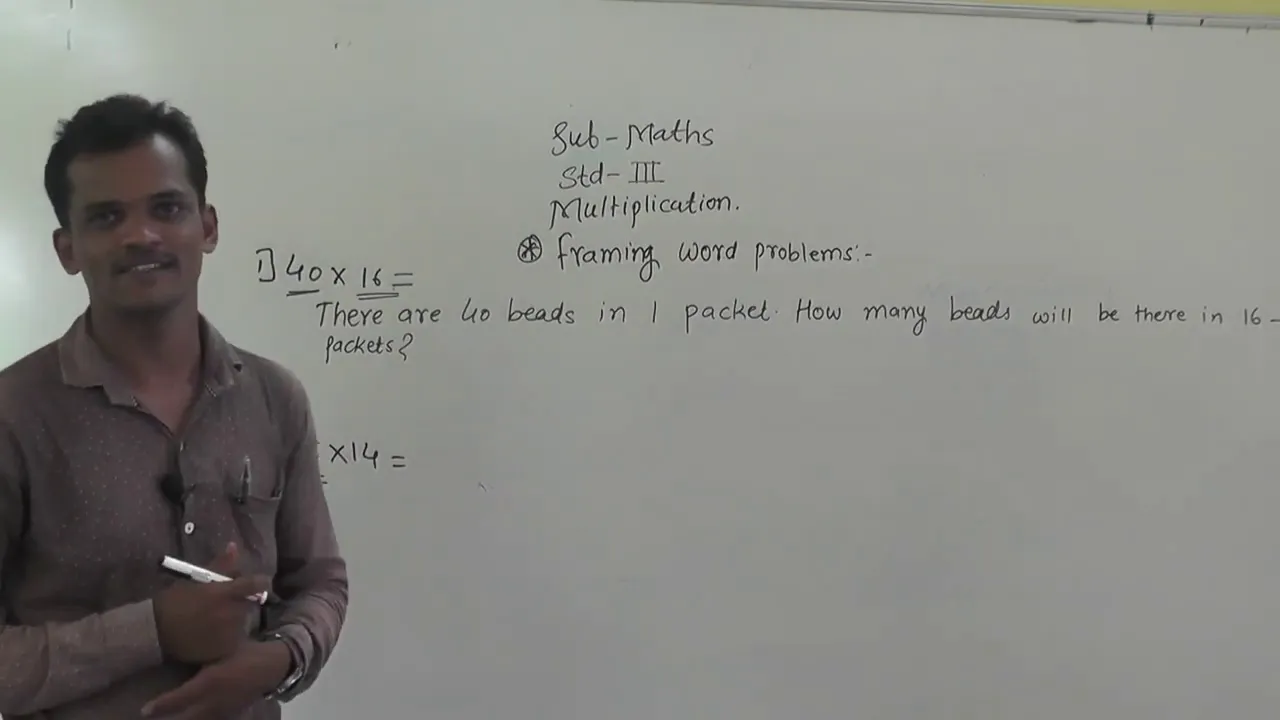 Sub - Maths
Std - III
Multiplication.
⊛ framing word problems:-
1] 40 x 16 =
There are 40 beads in 1 packet. How many beads will be there in 16 -
packets?
x 14 =